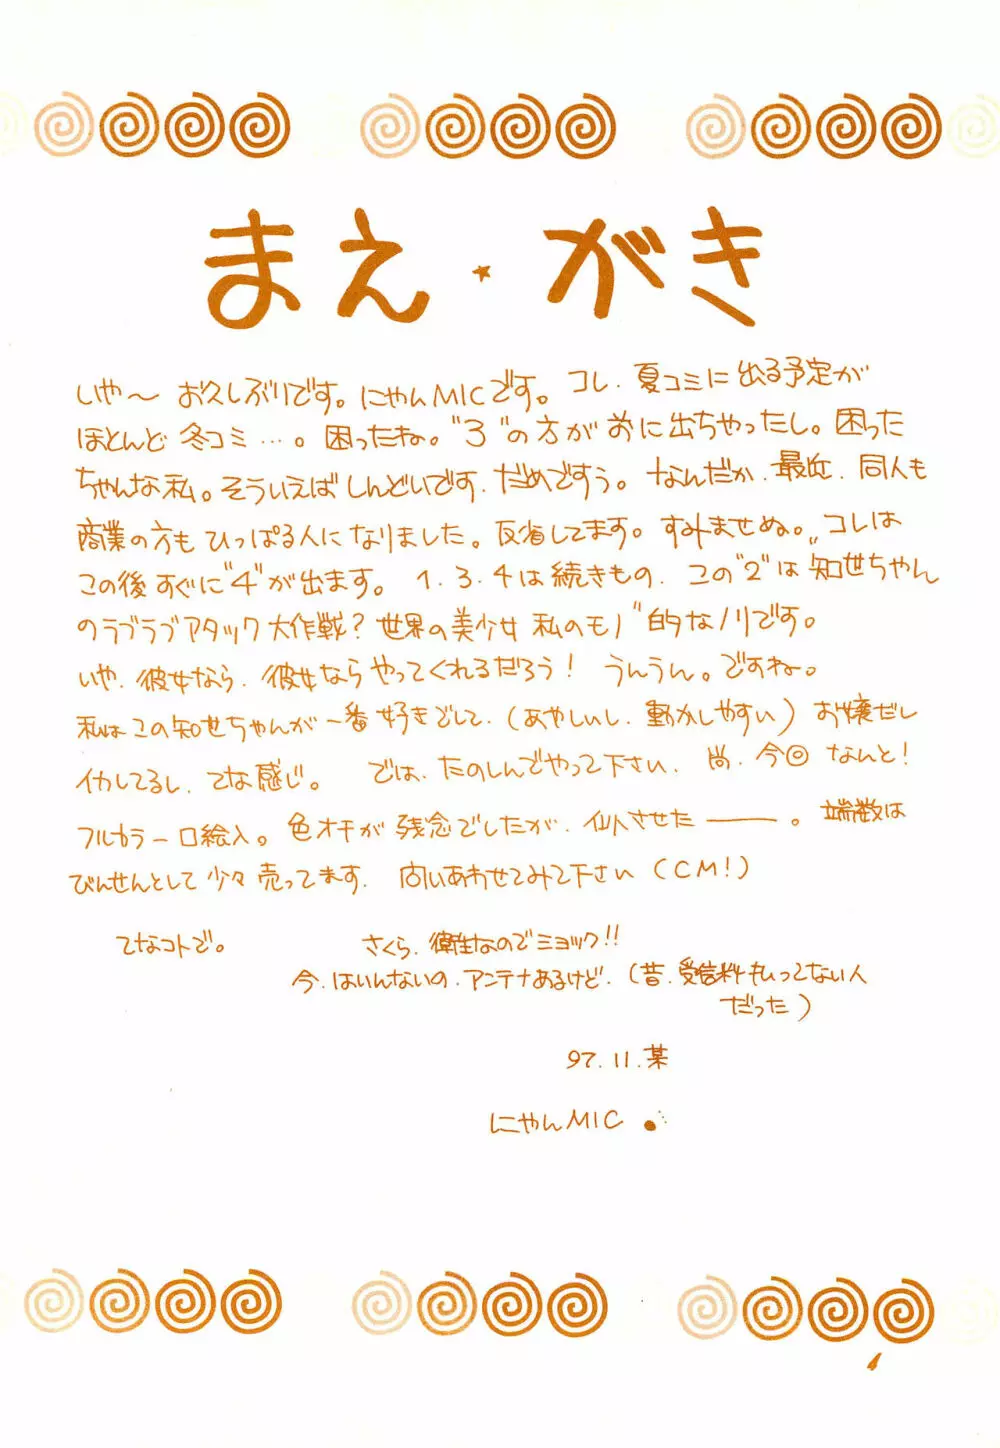 まえ・がき
いや〜お久しぶりです。にゃんMICです。コレ、夏コミに出る予定が
ほとんど冬コミ…。困ったね。"3"の方が前に出ちゃったし。困った
ちゃんな私。そういえばしんどいです、だめですぅ。なんだか、最近、同人も
商業の方もひっぱる人になりました。反省してます。すみませぬ。コレは
この後すぐに"4"が出ます。1.3.4は続きもの、この"2"は"知世ちゃん
のラブラブアタック大作戦?世界の美少女私のモノ"的なノリです。
いや、彼女なら、彼女ならやってくれるだろう!うんうん。ですね。
私はこの知世ちゃんが一番好きでして、(あやしいし、動かしやすい)お嬢だし
イカしてるし、てな感じ。では、たのしんでやって下さい、尚、今回なんと!
フルカラー口絵入。色オチが残念でしたが、仙人させた――。端数は
びんせんとして少々売ってます、問いあわせてみて下さい(CM!)
てなコトで。
さくら、衛生なのでミョック!!
今、はいんないの、アンテナあるけど、(昔、受信料もいってない人
だった)
97.11.某
にゃんMIC
1